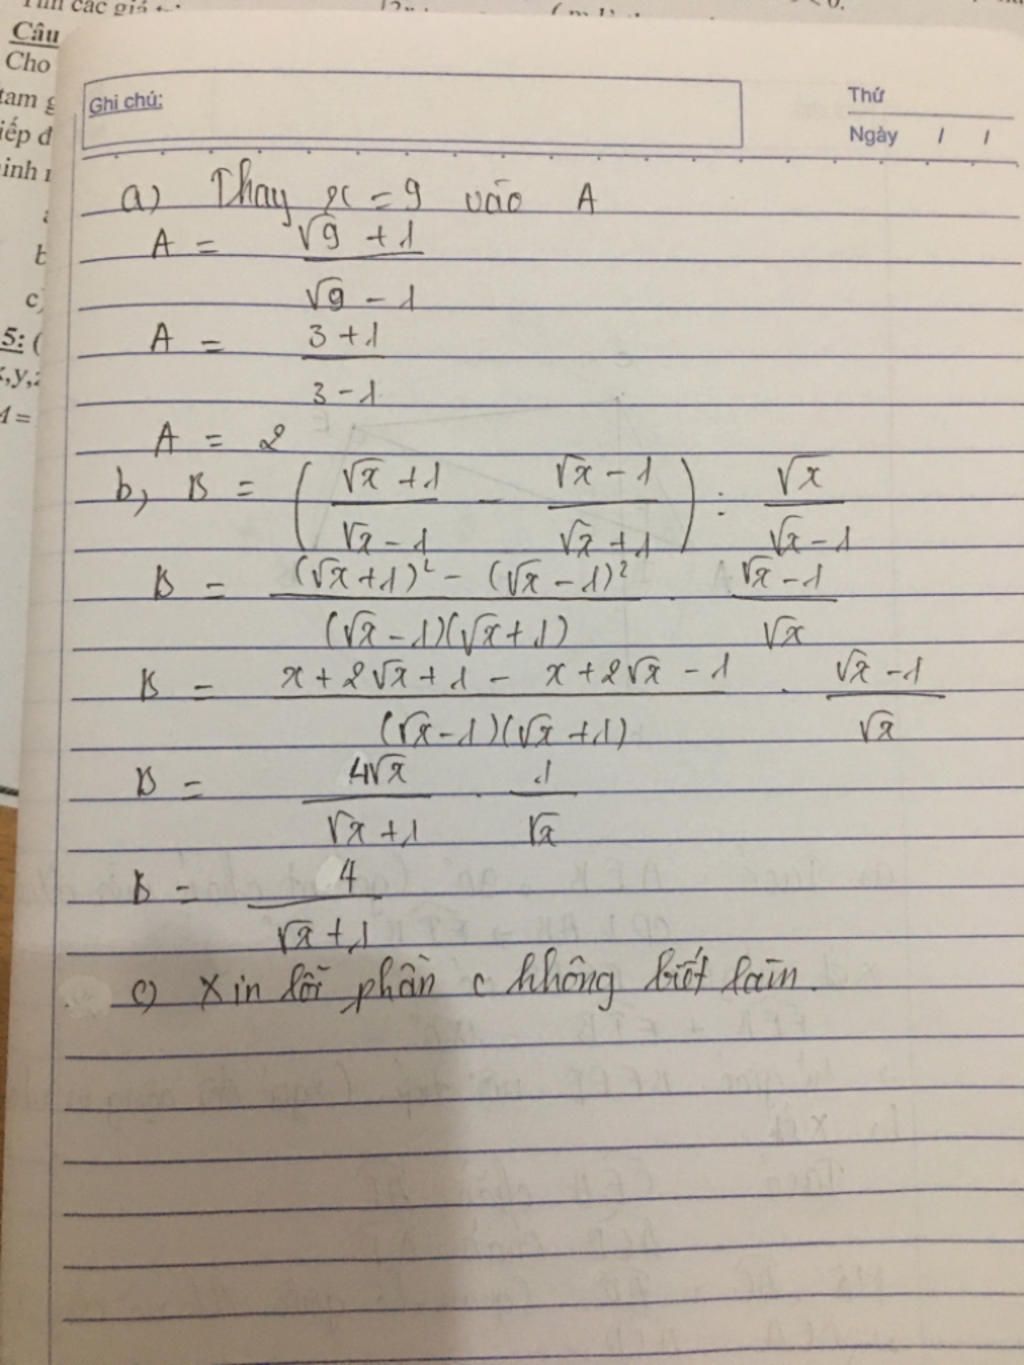 Câu
Cho
tam g
iếp đ
inh
b
c)
5: (
x,y,
Ghi chú:
Thứ
Ngày / /
a) Thay x = 9 vào A
A = (√9 + 1)/(√9 - 1)
A = (3 + 1)/(3 - 1)
A = 2
b, B = ((√x + 1)/(√x - 1) - (√x - 1)/(√x + 1)) : √x/(√x - 1)
B = ((√x + 1)² - (√x - 1)²)/((√x - 1)(√x + 1)) . (√x - 1)/√x
B = (x + 2√x + 1 - x + 2√x - 1)/((√x - 1)(√x + 1)) . (√x - 1)/√x
B = 4√x/(√x + 1) . 1/√x
B = 4/(√x + 1)
c) Xin lỗi phần c không biết làm.